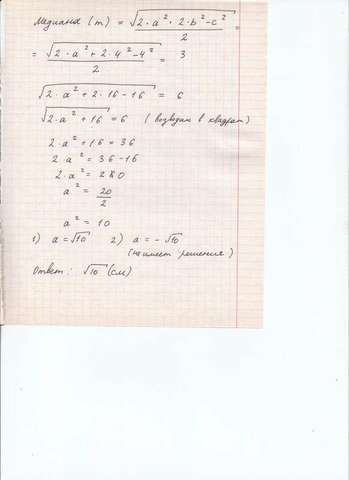 Медиана (m) = √(2·a²·2·b²-c²)/2 =
= √(2·a²+2·4²-4²)/2 = 3
√(2·a²+2·16-16) = 6
√(2·a²+16) = 6 (возводим в квадрат)
2·a²+16=36
2·a²=36-16
2·a²=20
a²=20/2
a²=10
1) a=√10 2) a=-√10
(не имеет решения)
Ответ: √10 (см)